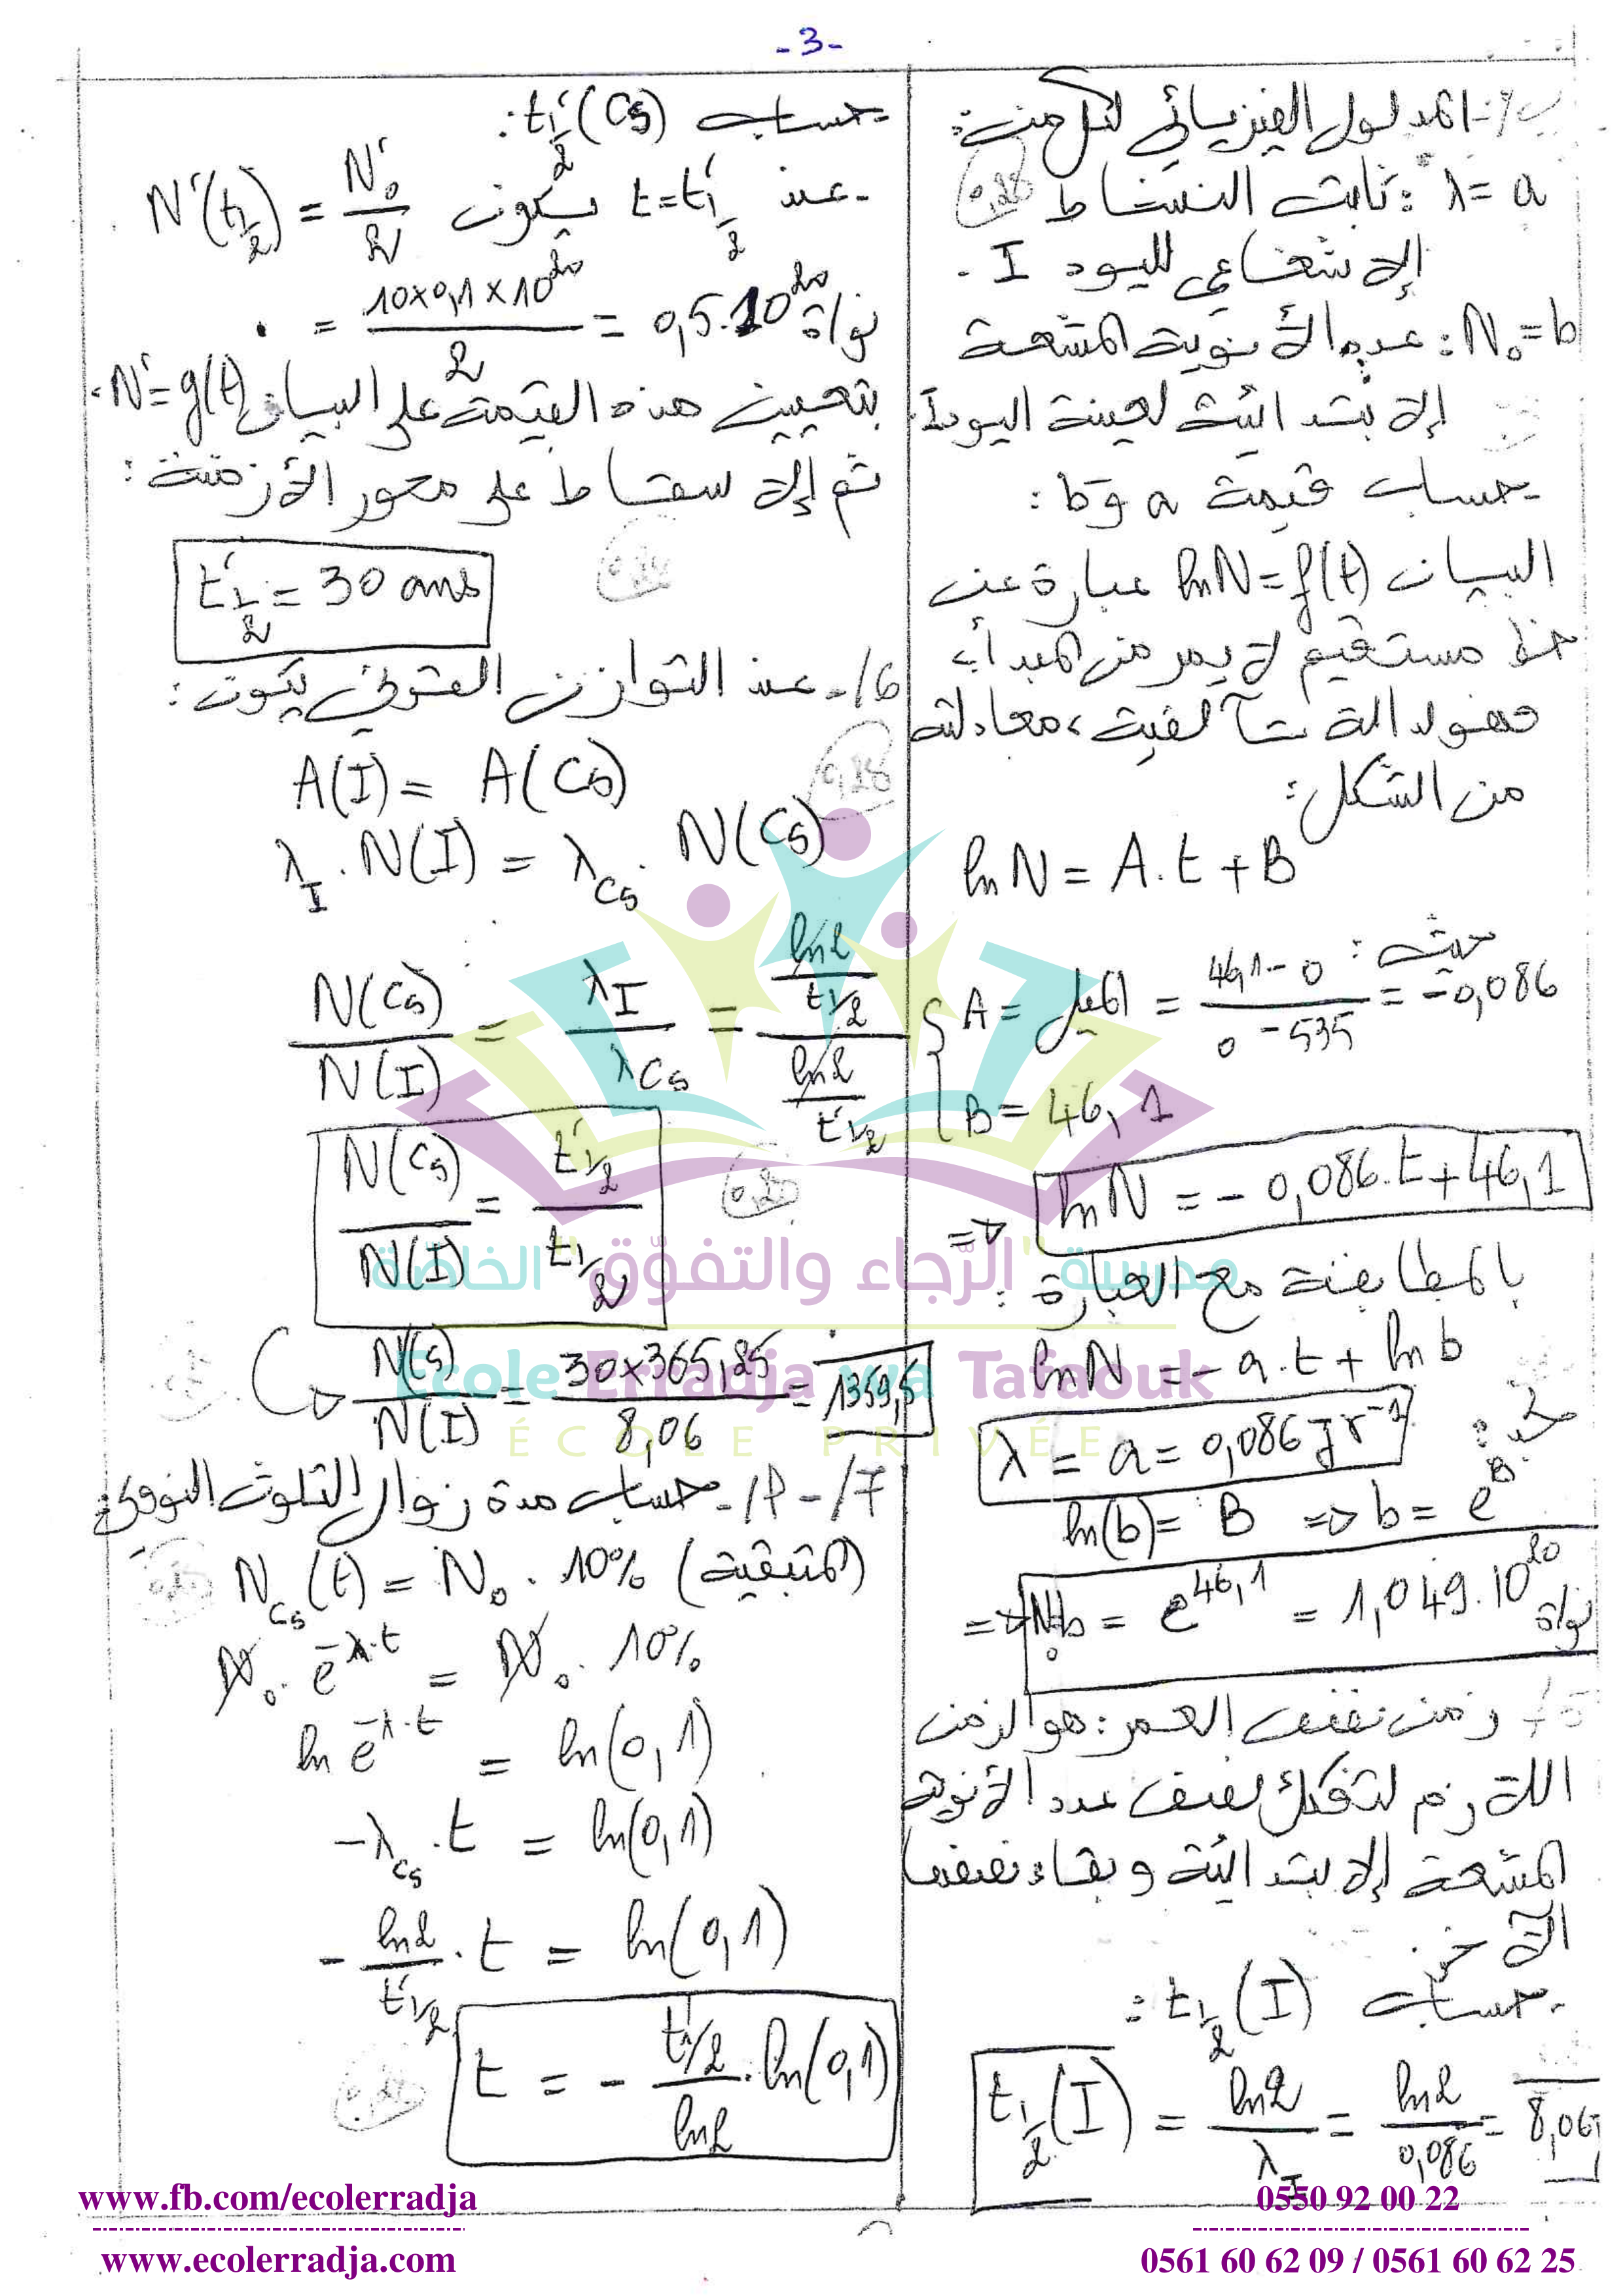 -3-
ب/- المدلول الفيزيائي لكل من:
λ = a : ثابت النشاط
0,25
الإشعاعي لليود I .
N₀ = b : عدد الأنوية المشعة
الإبتدائية لعينة اليود I.
- حساب قيمة a و b :
البيان lnN = f(t) عبارة عن
خط مستقيم لا يمر من المبدأ
فهو دالة تآلفية، معادلته
من الشكل:
lnN = A.t + B
حيث :
A = الميل = (46,1 - 0)/(0 - 535) = -0,086
B = 46,1
=> lnN = - 0,086.t + 46,1
بالمطابقة مع العبارة :
lnN = - a.t + ln b
نجد :
λ = a = 0,086 jr⁻¹
ln(b) = B => b = e^B
=> N₀ = b = e^46,1 = 1,049.10²⁰ نواة
5/- زمن نصف العمر: هو الزمن
اللازم لتفكك نصف عدد الأنوية
المشعة الإبتدائية وبقاء نصفها
الآخر.
- حساب t½(I) :
t½(I) = ln2/λ_I = ln2/0,086 = 8,06 j
- حساب t'½(Cs) :
- عند t = t'½ يكون N'(t½) = N'₀/2
= (10×0,1×10²⁰)/2 = 0,5.10²⁰ نواة
بتعيين هذه القيمة على البيان N' = g(t)
ثم الإسقاط على محور الأزمنة :
t'½ = 30 ans
6/- عند التوازن القرني يكون :
A(I) = A(Cs)
0,25
λ_I . N(I) = λ_Cs . N(Cs)
N(Cs)/N(I) = λ_I/λ_Cs = (ln2/t½)/(ln2/t'½)
N(Cs)/N(I) = t'½/t½
0,25
N(Cs)/N(I) = (30×365,25)/8,06 = 1359,5
7/- P/- حساب مدة زوال التلوث النووي:
N_Cs(t) = N₀ . 10% (المتبقية)
N₀ . e^-λ.t = N₀ . 10%
ln e^-λ.t = ln(0,1)
-λ_Cs . t = ln(0,1)
- (ln2/t'½) . t = ln(0,1)
t = - (t'½/ln2) . ln(0,1)
مدرسة "الرّجاء والتفوّق" الخاصّة
Ecole Erradja wa Tafaouk
ÉCOLE PRIVÉE
www.fb.com/ecolerradja
0550 92 00 22
www.ecolerradja.com
0561 60 62 09 / 0561 60 62 25